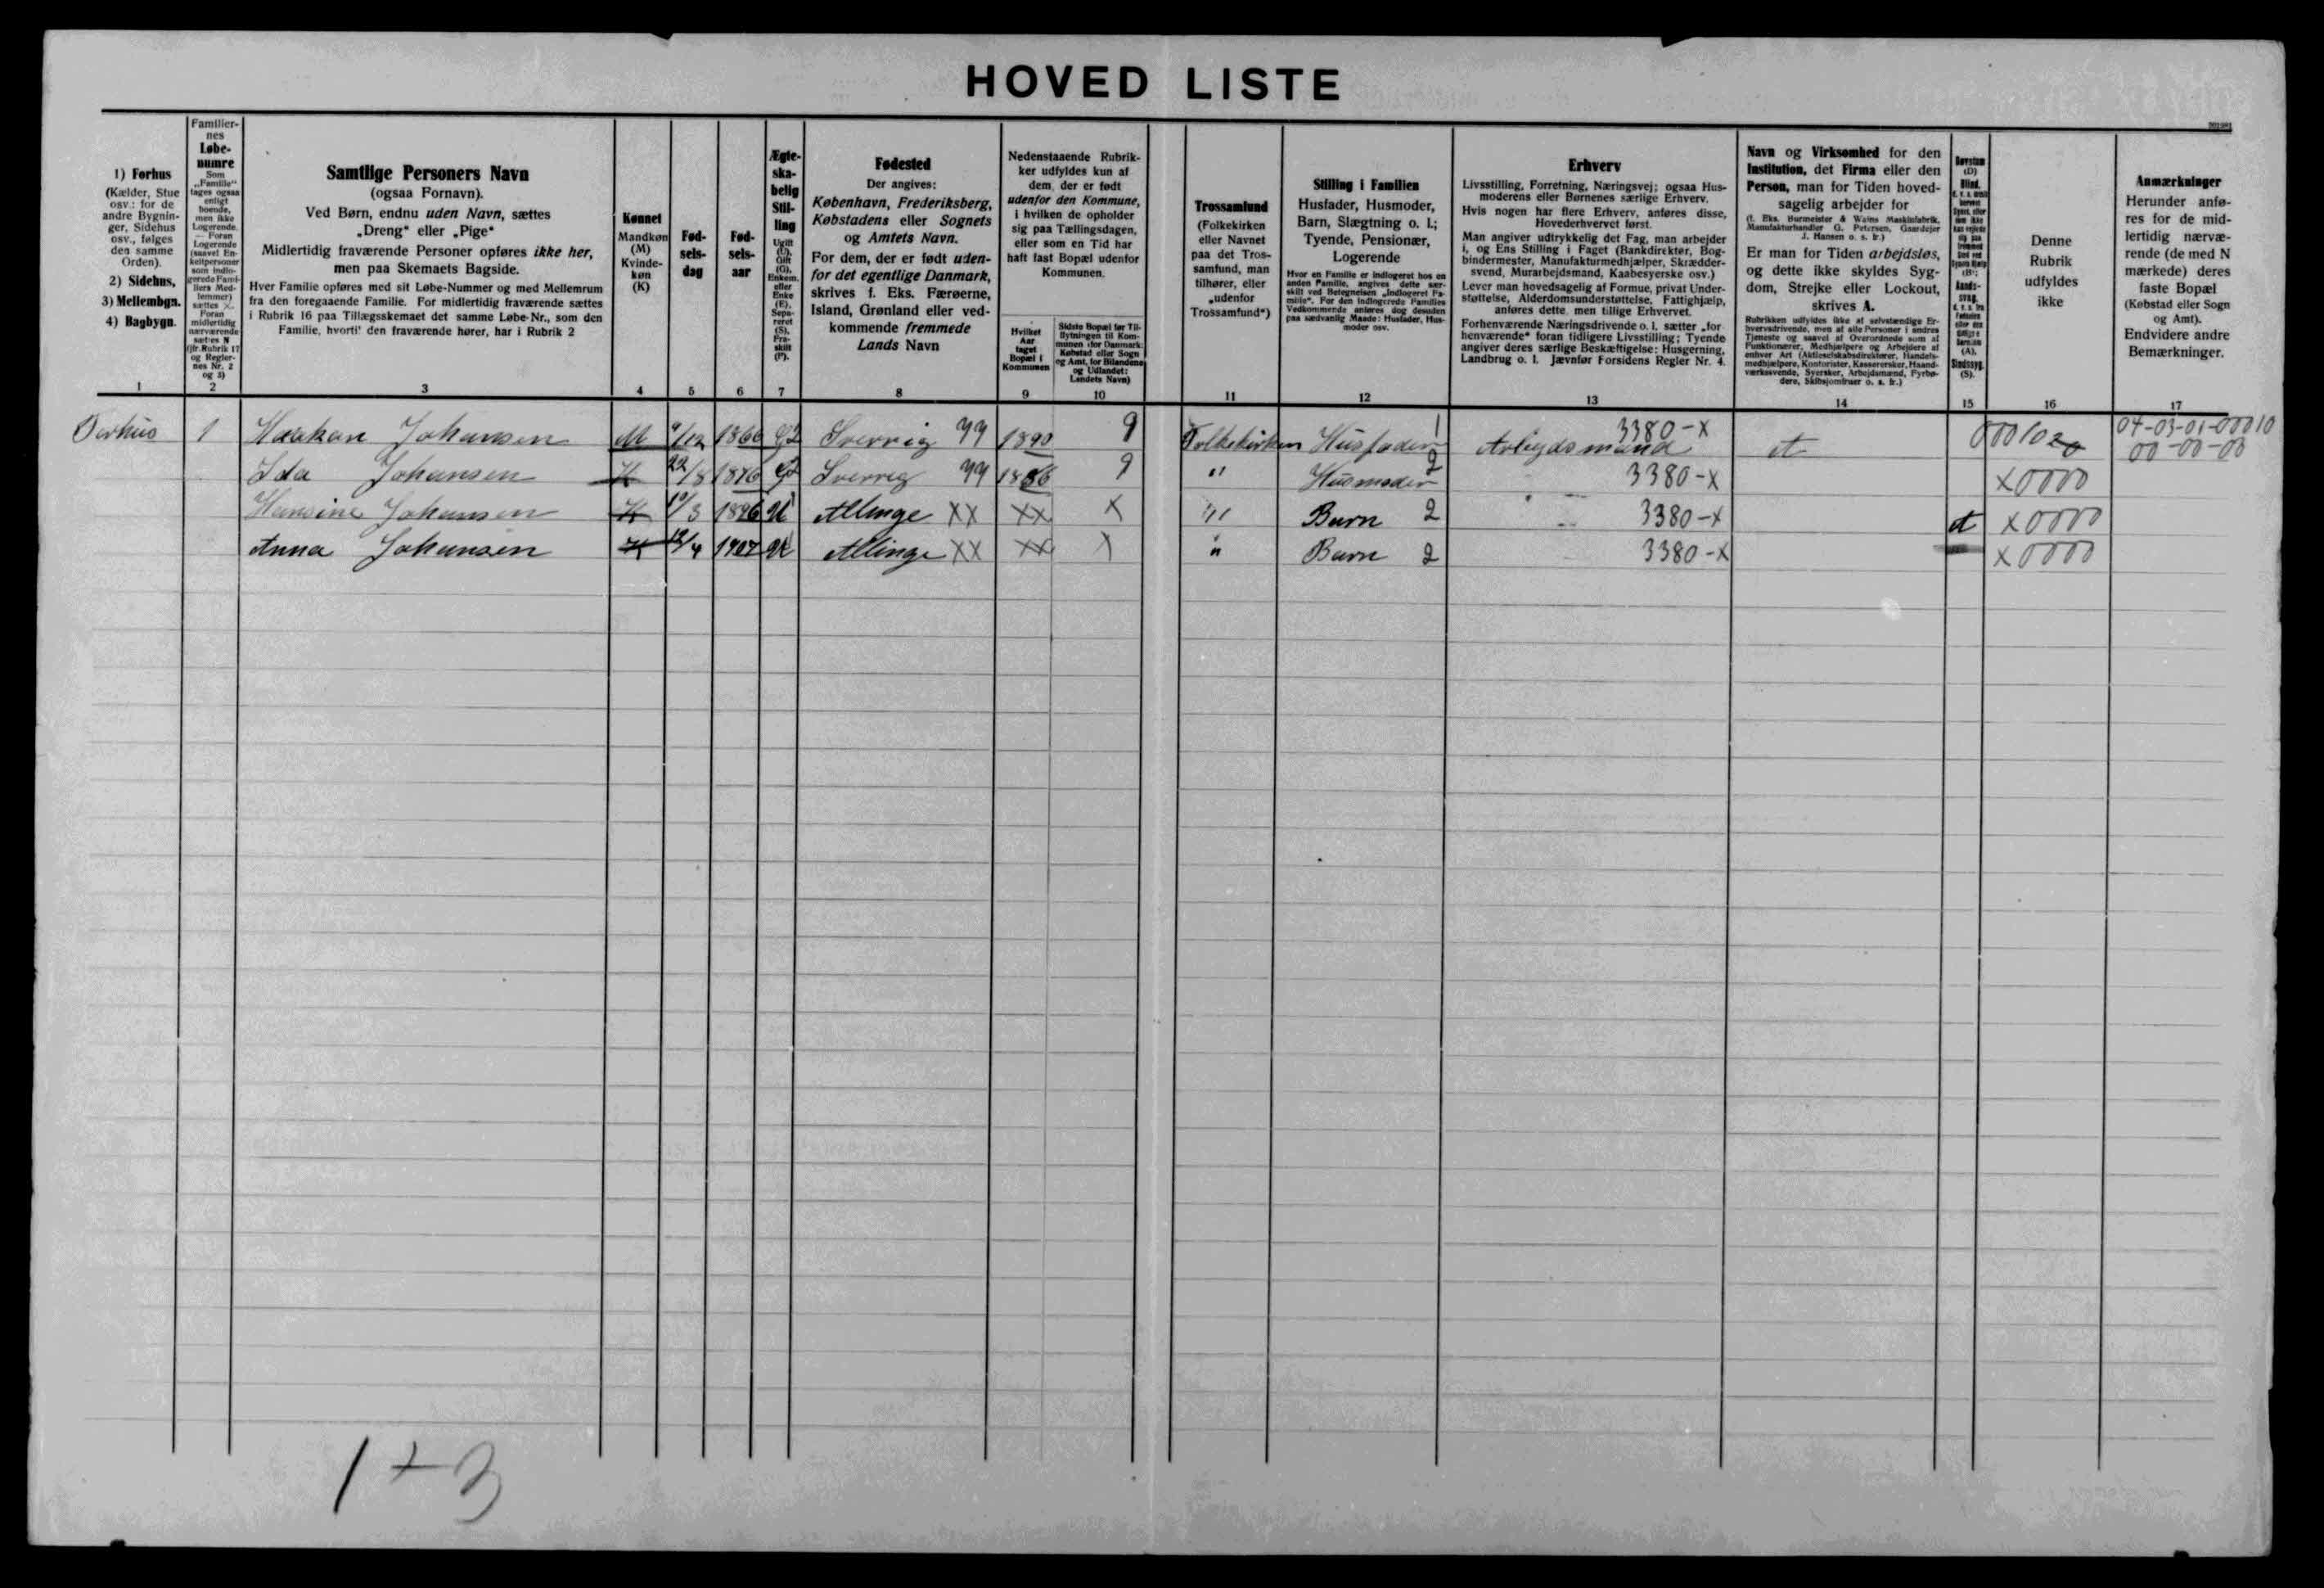 HOVED LISTE
1) Forhus
(Kælder, Stue
osv.: for de
andre Bygnin-
ger, Sidehus
osv., følges
den samme
Orden).
2) Sidehus,
3) Mellembgn.
4) Bagbygn.
1
Familier-
nes
Løbe-
numre
Som
„Familie“
tages ogsaa
enligt
boende,
men ikke
Logerende.
— Foran
Logerende
(saavel En-
keltpersoner
som indlo-
gerede Fami-
liers Med-
lemmer)
sættes ×.
Foran
midlertidig
nærværende
sættes N
(jfr. Rubrik 17
og Regler-
nes Nr. 2
og 3)
2
Samtlige Personers Navn
(ogsaa Fornavn).
Ved Børn, endnu uden Navn, sættes
„Dreng“ eller „Pige“
Midlertidig fraværende Personer opføres ikke her,
men paa Skemaets Bagside.
Hver Familie opføres med sit Løbe-Nummer og med Mellemrum
fra den foregaaende Familie. For midlertidig fraværende sættes
i Rubrik 16 paa Tillægsskemaet det samme Løbe-Nr., som den
Familie, hvortil den fraværende hører, har i Rubrik 2
3
Kønnet
Mandkøn
(M)
Kvinde-
køn
(K)
4
Fød-
sels-
dag
5
Fød-
sels-
aar
6
Ægte-
ska-
belig
Stil-
ling
Ugift
(U),
Gift
(G),
Enkem.
eller
Enke
(E),
Sepa-
reret
(S),
Fra-
skilt
(F).
7
Fødested
Der angives:
København, Frederiksberg,
Købstadens eller Sognets
og Amtets Navn.
For dem, der er født uden-
for det egentlige Danmark,
skrives f. Eks. Færøerne,
Island, Grønland eller ved-
kommende fremmede
Lands Navn
8
Nedenstaaende Rubrik-
ker udfyldes kun af
dem, der er født
udenfor den Kommune,
i hvilken de opholder
sig paa Tællingsdagen,
eller som en Tid har
haft fast Bopæl udenfor
Kommunen.
Hvilket
Aar
taget
Bopæl i
Kommunen
9
Sidste Bopæl før Til-
flytningen til Kom-
munen (for Danmark:
Købstad eller Sogn
og Amt, for Bilandene
og Udlandet:
Landets Navn)
10
Trossamfund
(Folkekirken
eller Navnet
paa det Tros-
samfund, man
tilhører, eller
„udenfor
Trossamfund“)
11
Stilling i Familien
Husfader, Husmoder,
Barn, Slægtning o. l.;
Tyende, Pensionær,
Logerende
Hvor en Familie er indlogeret hos en
anden Familie, angives dette sær-
skilt ved Betegnelsen „Indlogeret Fa-
milie“. For den indlogerede Families
Vedkommende anføres dog desuden
paa sædvanlig Maade: Husfader, Hus-
moder osv.
12
Erhverv
Livsstilling, Forretning, Næringsvej; ogsaa Hus-
moderens eller Børnenes særlige Erhverv.
Hvis nogen har flere Erhverv, anføres disse,
Hovederhvervet først.
Man angiver udtrykkelig det Fag, man arbejder
i, og Ens Stilling i Faget (Bankdirektør, Bog-
bindermester, Manufakturmedhjælper, Skrædder-
svend, Murarbejdsmand, Kaabesyerske osv.)
Lever man hovedsagelig af Formue, privat Under-
støttelse, Alderdomsunderstøttelse, Fattighjælp,
anføres dette, men tillige Erhvervet.
Forhenværende Næringsdrivende o. l. sætter „for
henværende“ foran tidligere Livsstilling; Tyende
angiver deres særlige Beskæftigelse: Husgerning,
Landbrug o. l. Jævnfør Forsidens Regler Nr. 4.
13
Navn og Virksomhed for den
Institution, det Firma eller den
Person, man for Tiden hoved-
sagelig arbejder for
(f. Eks. Burmeister & Wains Maskinfabrik,
Manufakturhandler G. Petersen, Gaardejer
J. Hansen o. s. fr.)
Er man for Tiden arbejdsløs,
og dette ikke skyldes Syg-
dom, Strejke eller Lockout,
skrives A.
Rubrikken udfyldes ikke af selvstændige Er-
hvervsdrivende, men af alle Personer i andres
Tjeneste og saavel af Overordnede som af
Funktionærer, Medhjælpere og Arbejdere af
enhver Art (Aktieselskabsdirektører, Handels-
medhjælpere, Kontorister, Kasserersker, Haand-
værkssvende, Syersker, Arbejdsmænd, Fyrbø-
dere, Skibsjomfruer o. s. fr.)
14
Døvstum
(D)
Blind,
15
Denne
Rubrik
udfyldes
ikke
16
Anmærkninger
Herunder anfø-
res for de mid-
lertidig nærvæ-
rende (de med N
mærkede) deres
faste Bopæl
(Købstad eller Sogn
og Amt).
Endvidere andre
Bemærkninger.
17
Forhus 1 Haakan Johansen M 9/12 1866 G2 Sverrig 99 1890 9 Folkekirken Husfader 1 Arbejdsmand 3380-X A 000102 04-03-01-00010
00-00-03
Ida Johansen K 22/8 1876 G2 Sverrig 99 1886 9 " Husmoder 2 3380-X X0000
Hansine Johansen K 10/3 1896 U Allinge XX XX X " Barn 2 3380-X A X0000
Anna Johansen K 12/4 1907 U Allinge XX XX X " Barn 2 3380-X X0000
1+3